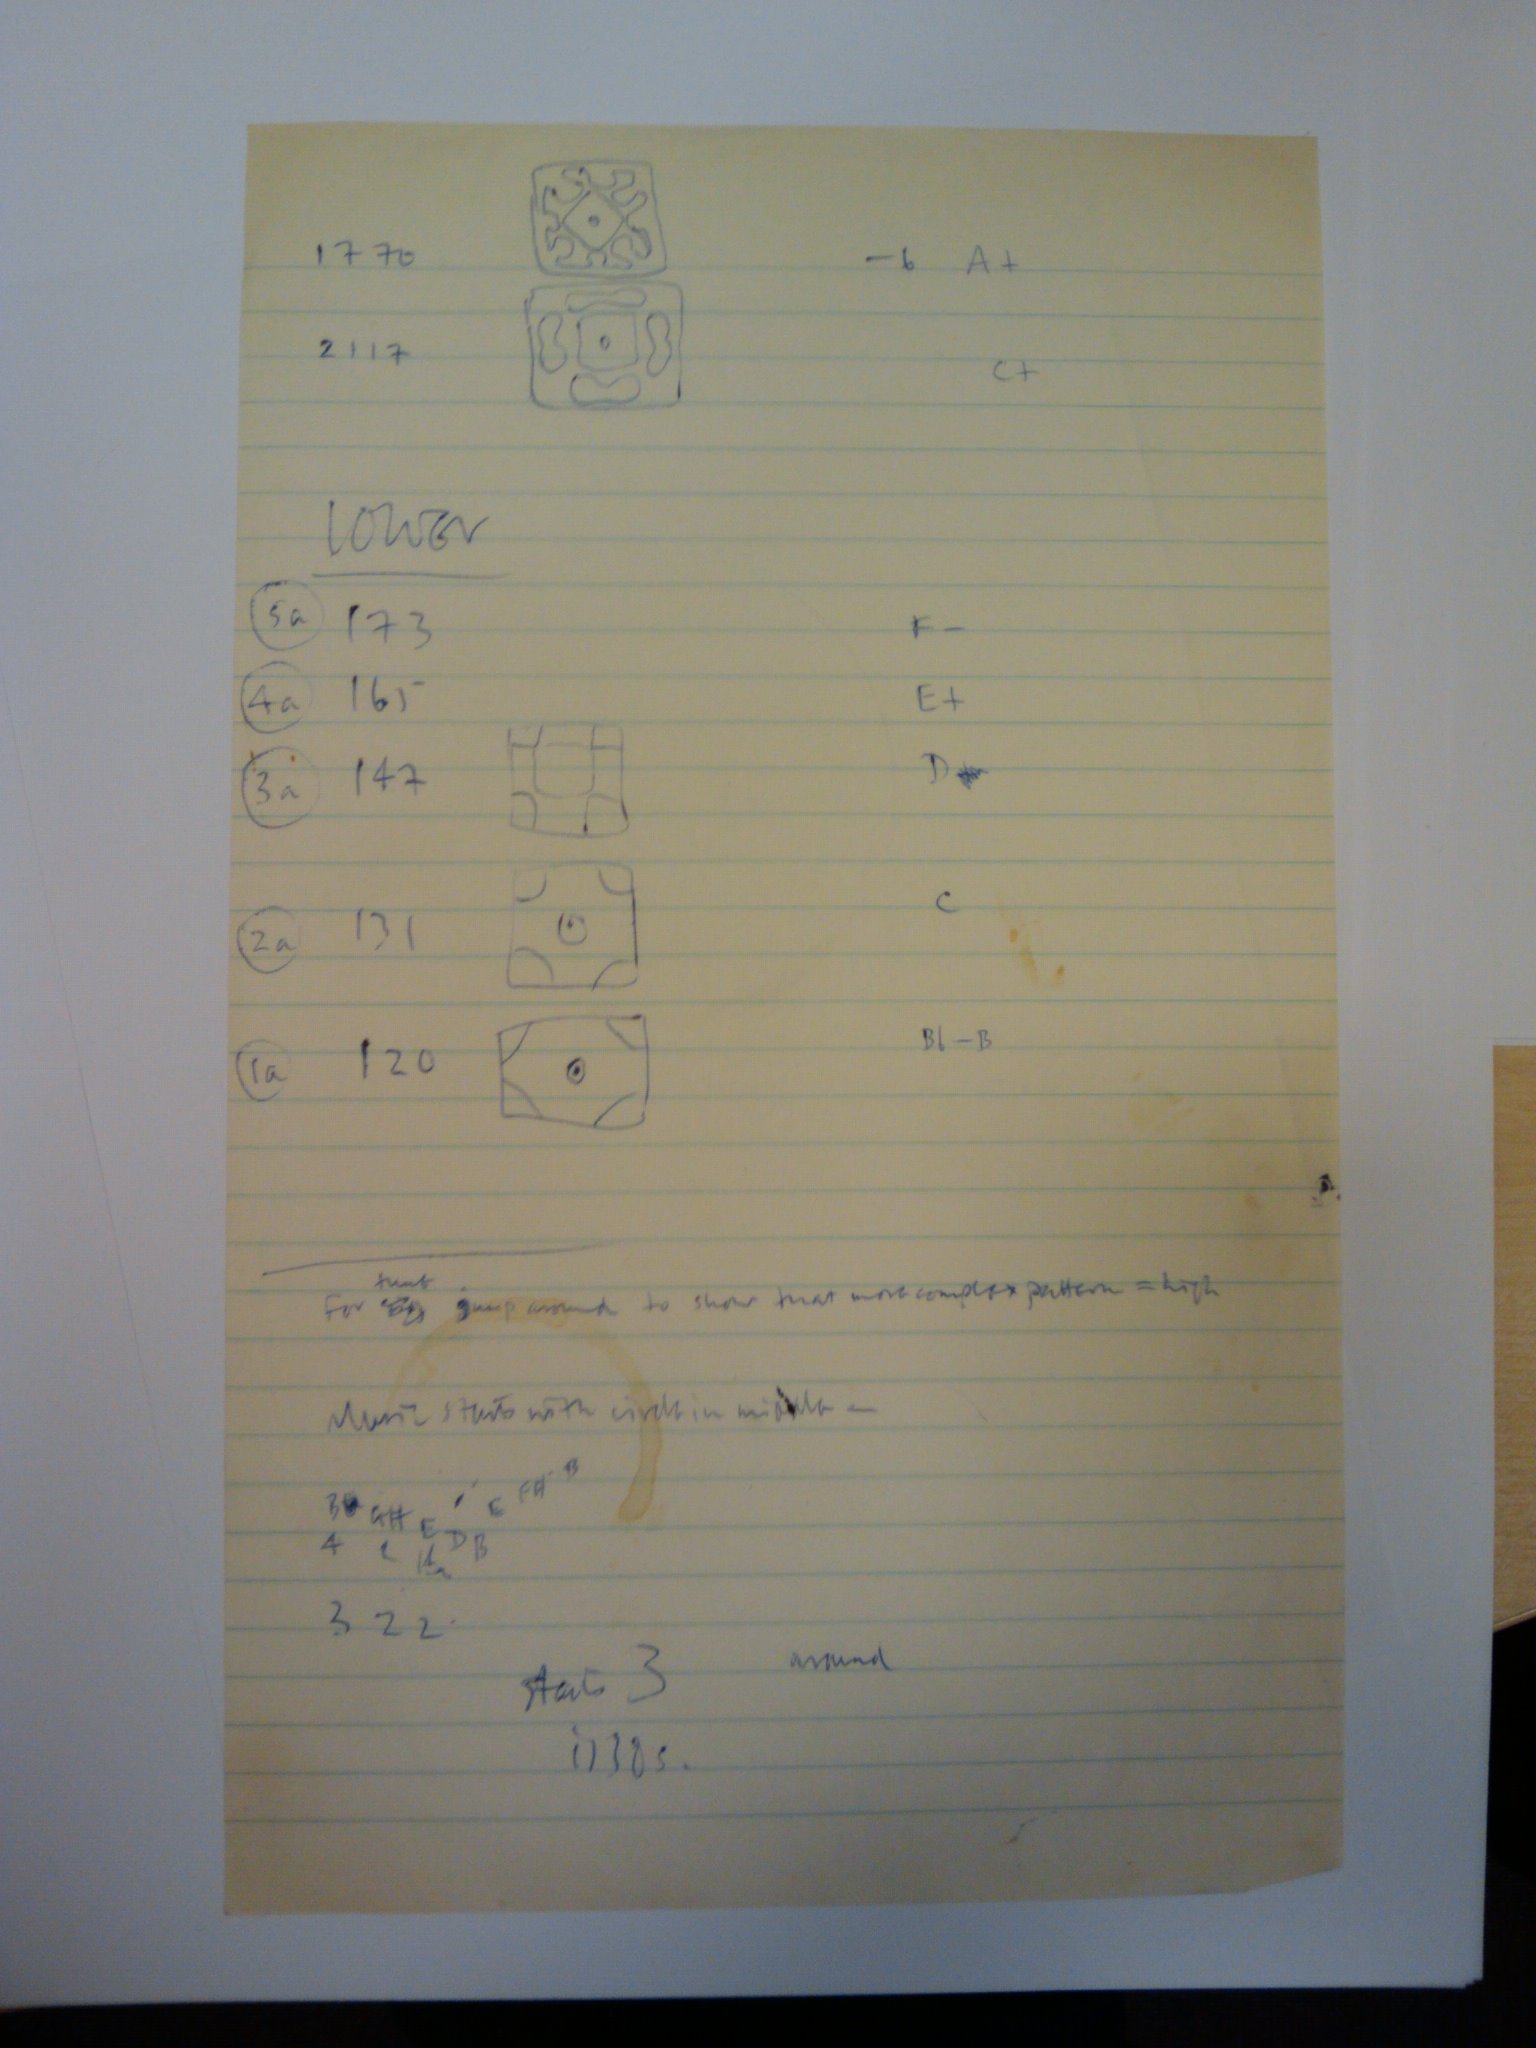 1770 -6 A+
2117 C+
LOWER
5a 173 F-
4a 165 E+
3a 147 D
2a 131 C
1a 120 Bb-B
that
For jump around to show that more complex pattern = high
Music starts with circle in middle -
3 G# E E F# B
4 2 D B
3 2 2
starts 3 around
1130s.